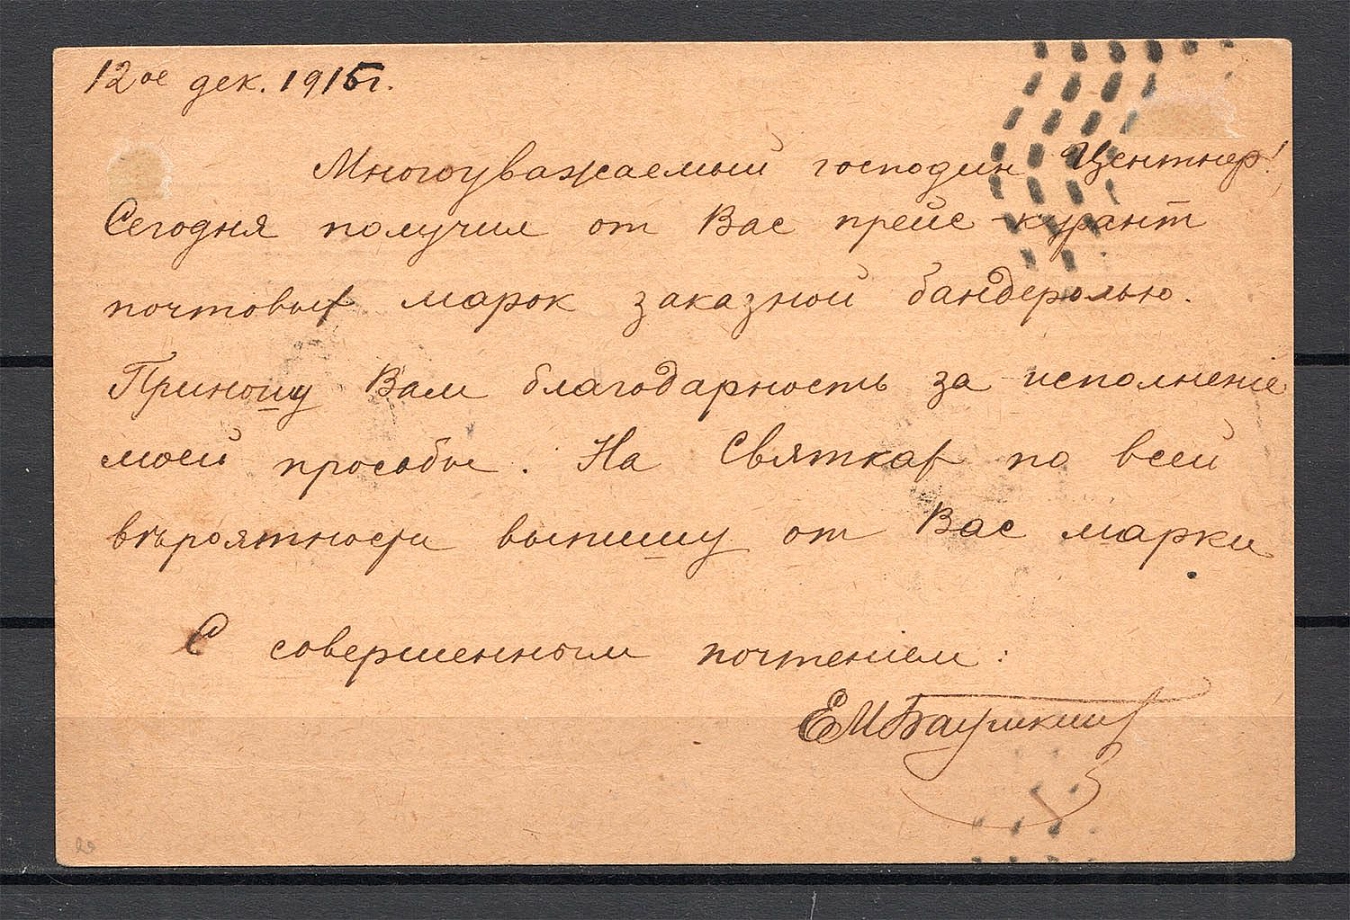 12ое дек. 1915г.
Многоуважаемый господин Центнер!
Сегодня получил от Вас прейс-курант
почтовых марок заказной бандеролью.
Приношу Вам благодарность за исполненіе
моей просьбы. На Святках по всей
вѣроятности выпишу от Вас марки
С совершенным почтеніем:
ЕМ